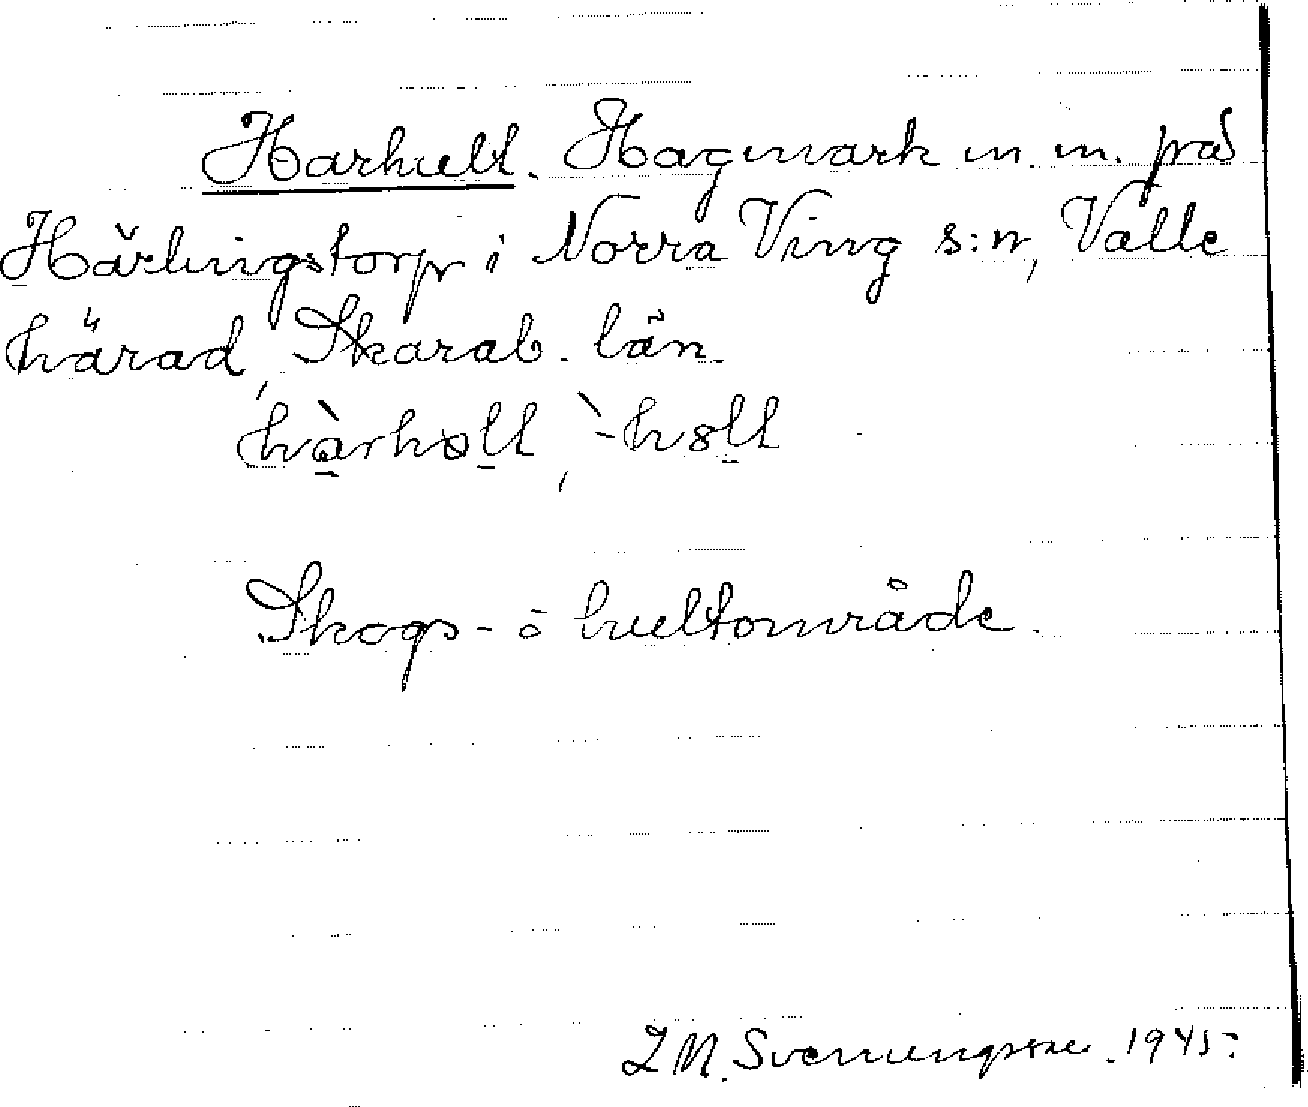 Harhult. Hagmark m.m. på
Härlingstorp i Norra Ving s:n, Valle
härad, Skarab. län
hàrholt, `-hɞlt
Skogs- o hultområde.
I M. Svenungsson. 1945.